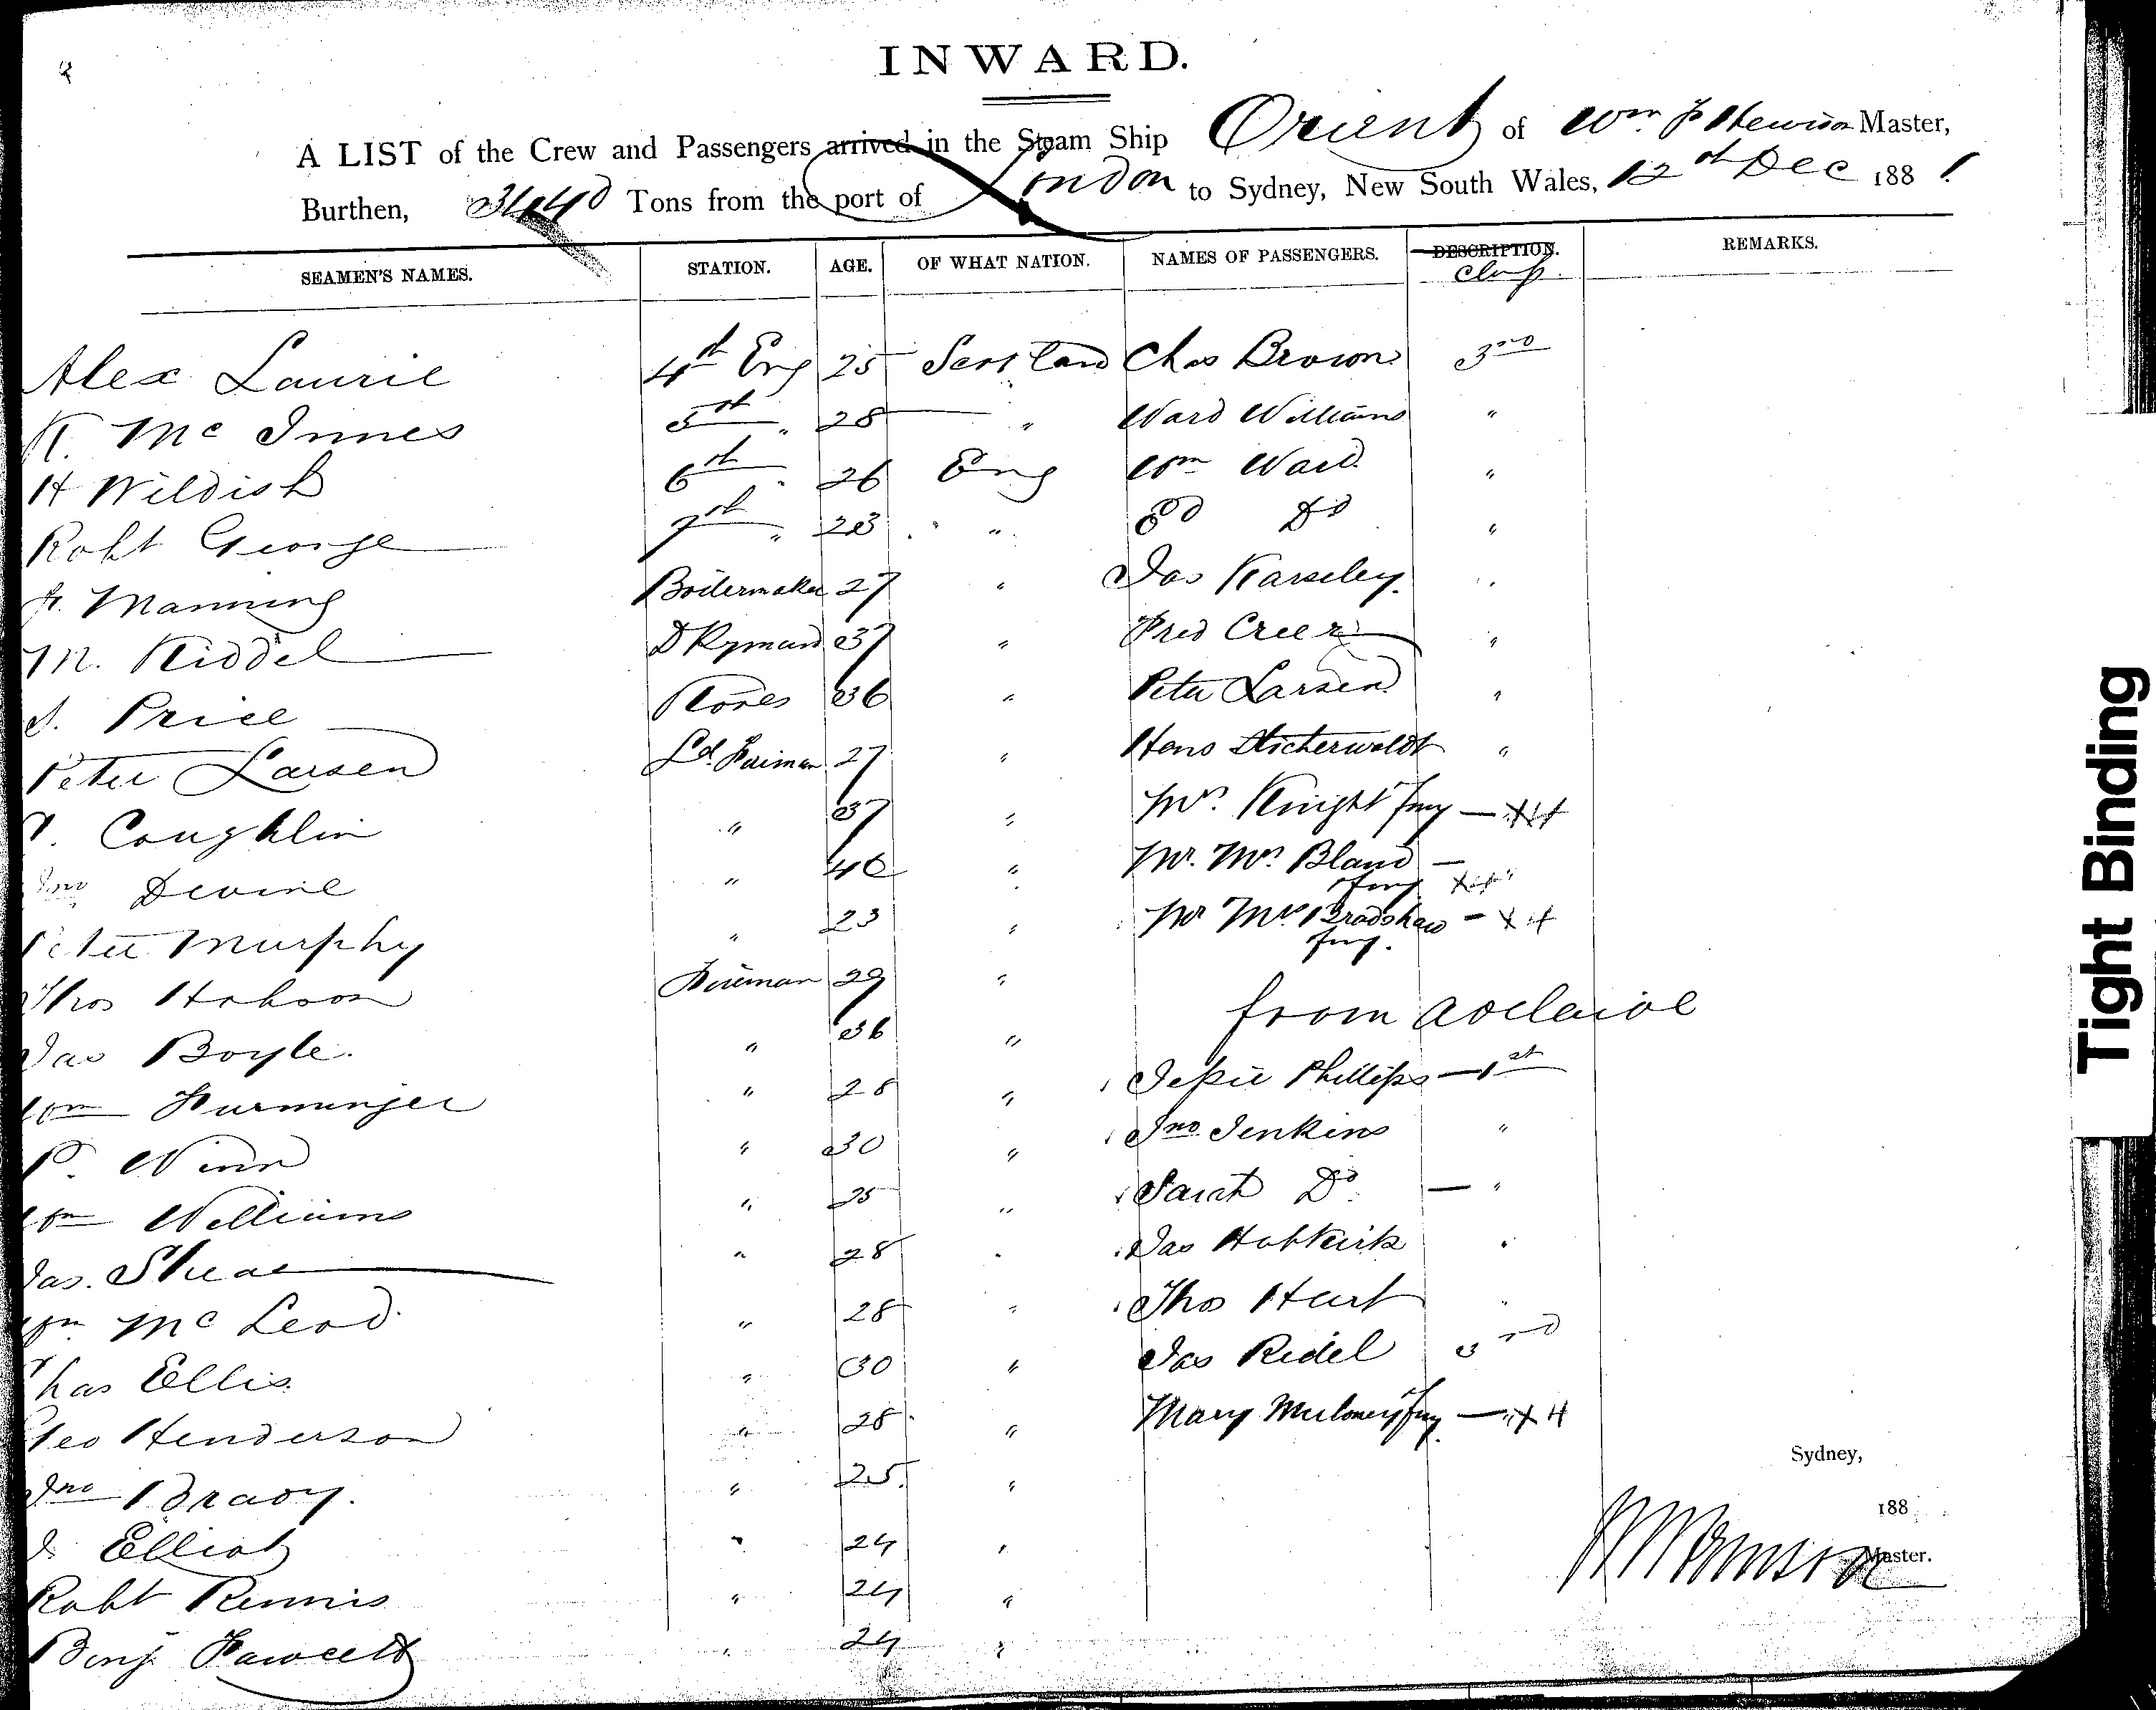 INWARD.
A LIST of the Crew and Passengers arrived in the Steam Ship Orient of Wm F Hewison Master,
Burthen, 3440 Tons from the port of London to Sydney, New South Wales, 12th Dec 1881
SEAMEN'S NAMES. STATION. AGE. OF WHAT NATION. NAMES OF PASSENGERS. DESCRIPTION. REMARKS.
Class
Alex Laurie 4th Eng 25 Scotland Chas Brown 3rd
K. Mc Innes 5th " 28 " Ward Williams "
H Wildish 6th " 26 Eng Wm Ward "
Robt George 7th " 23 " Ed Do "
Manning Boilermaker 27 " Jas Karseley "
M. Riddel DKyman 37 " Fred Creer "
Price Stores 36 " Peter Larsen "
Peter Larsen Ld. Fireman 27 " Hans "
Coughlin " 37 " Mrs. Knight fmy —
Jno Devine " 40 " Mr. Mrs. Bland —
fmy
Peter Murphy " 23 " Mr Mrs Bradshaw —
fmy.
Thos Hobson Fireman 29 "
from Adelaide
Jas Boyle. " 36 "
Wm " 28 " Jessie Phillips — 1st
P. Winn " 30 " Jno Jenkins "
Wm Williams " 25 " Sarah Do — "
Jas. Shea " 28 " Jas Hobkirk "
Wm Mc Leod " 28 " Thos Hart "
Chas Ellis " 30 " Jas Ridel 3rd
Geo Henderson " 28 " Mary fmy —
Jno Brady. " 25 "
J. Elliot " 24 "
Robt Rennis " 24 "
Benj. Fawcett " 24 "
Sydney,
188
Master.
Tight Binding